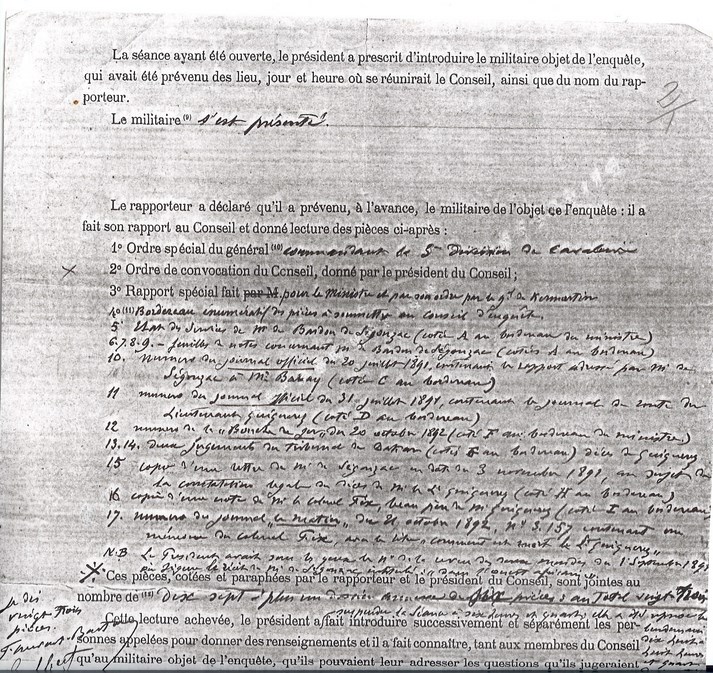 La séance ayant été ouverte, le président a prescrit d'introduire le militaire objet de l'enquête,
qui avait été prévenu des lieu, jour et heure où se réunirait le Conseil, ainsi que du nom du rap-
porteur.
Le militaire (9) s'est présenté.
Le rapporteur a déclaré qu'il a prévenu, à l'avance, le militaire de l'objet de l'enquête : il a
fait son rapport au Conseil et donné lecture des pièces ci-après :
1° Ordre spécial du général (10) commandant la 5e Division de Cavalerie
2° Ordre de convocation du Conseil, donné par le président du Conseil ;
3° Rapport spécial fait par M. pour le Ministre et par son ordre par le gal de Kermartin
(11) Bordereau énumératif des pièces à soumettre au conseil d'enquête.
5° Etat des services de Mr de Bardon de Segonzac (coté A au bordereau du ministre)
6.7.8.9. - feuilles de notes concernant Mr de Bardon de Segonzac (cotées A au bordereau)
10. numéro du journal officiel du 20 juillet 1891, contenant le rapport adressé par Mr de
Segonzac à Mr Ballay (coté C au bordereau)
11 numéro du journal officiel du 31 juillet 1891, contenant le journal de route du
Lieutenant Quiquerez (coté D au bordereau)
12 numéro de la du 20 octobre 1892 (coté F au bordereau du ministre)
13.14. deux jugements du tribunal de Dakar (cotés au bordereau) décès de Quiquerez
15 copie d'une lettre de Mr de Segonzac en date du 3 novembre 1891, au sujet de
la constatation légale du décès de Mr le Lt Quiquerez (coté H au bordereau)
16 copie d'une note de Mr le colonel Fix, beau père de Mr Quiquerez (coté I au bordereau)
17. numéro du journal "le Matin" du 21 octobre 1892, n° 3.157 contenant un
du colonel Fix, sous le titre "comment est mort le Lt Quiquerez"
N.B Le Président avait sous les yeux le n° de la revue des deux mondes du 1 Septembre 1891
Ces pièces, cotées et paraphées par le rapporteur et le président du Conseil, sont jointes au
nombre de (12) dix sept plus un dossier de six pièces au total vingt trois
suspendre la séance à six heures
Cette lecture achevée, le président a fait introduire successivement et séparément les per-
sonnes appelées pour donner des renseignements et il a fait connaître, tant aux membres du Conseil
qu'au militaire objet de l'enquête, qu'ils pouvaient leur adresser les questions qu'ils jugeraient
vingt trois
pièces.